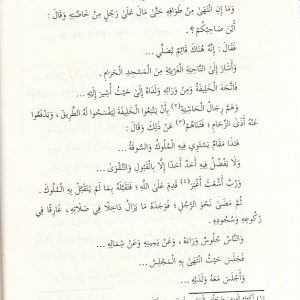 وَمَا إِنِ انْتَهَى مِنْ طَوَافِهِ حَتَّى مَالَ عَلَى رَجُلٍ مِنْ خَاصَّتِهِ وَقَالَ :
أَيْنَ صَاحِبُكُمْ ؟ .
فَقَالَ : إِنَّهُ هُنَاكَ قَائِمٌ يُصَلِّي ...
وَأَشَارَ إِلَى النَّاحِيَةِ الْغَرْبِيَّةِ مِنَ الْمَسْجِدِ الْحَرَامِ .
فَاتَّجَهَ الْخَلِيفَةُ وَمِنْ وَرَائِهِ وَلَدَاهُ إِلَى حَيْثُ أُشِيرَ إِلَيْهِ ...
وَهَمَّ رِجَالُ الْحَاشِيَةِ(٢) بِأَنْ يَتْبَعُوا الْخَلِيفَةَ لِيُفْسِحُوا لَهُ الطَّرِيقَ ، وَيَدْفَعُوا
عَنْهُ أَذَى الزِّحَامِ ؛ فَثَنَاهُمْ(٣) عَنْ ذَلِكَ وَقَالَ :
هَذَا مَقَامٌ يَسْتَوِي فِيهِ الْمُلُوكُ وَالسُّوقَةُ ...
وَلَا يَفْضُلُ فِيهِ أَحَدٌ أَحَدًا إِلَّا بِالْقَبُولِ وَالتَّقْوَى ...
وَرُبَّ أَشْعَثَ أَغْبَرَ(٤) قَدِمَ عَلَى اللَّهِ ؛ فَتَقَبَّلَهُ بِمَا لَمْ يَتَقَبَّلْ بِهِ الْمُلُوكَ .
ثُمَّ مَضَى نَحْوَ الرَّجُلِ ؛ فَوَجَدَهُ مَا يَزَالُ دَاخِلًا فِي صَلَاتِهِ ، غَارِقًا فِي
رُكُوعِهِ وَسُجُودِهِ .
وَالنَّاسُ جُلُوسٌ وَرَاءَهُ ، وَعَنْ يَمِينِهِ وَعَنْ شِمَالِهِ ...
فَجَلَسَ حَيْثُ انْتَهَى بِهِ الْمَجْلِسُ ...
وَأَجْلَسَ مَعَهُ وَلَدَيْهِ ...